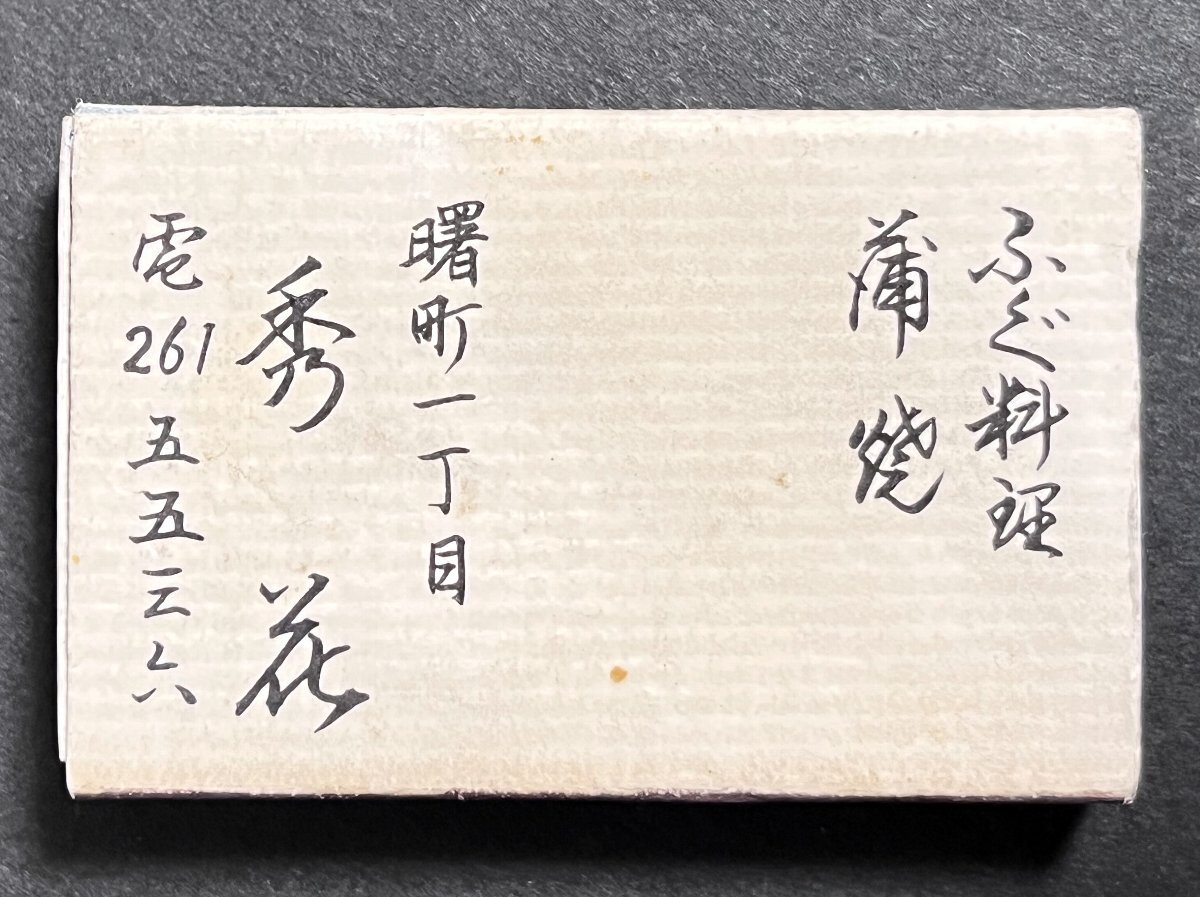 ふぐ料理
蒲焼
曙町一丁目
秀花
電261五五三六